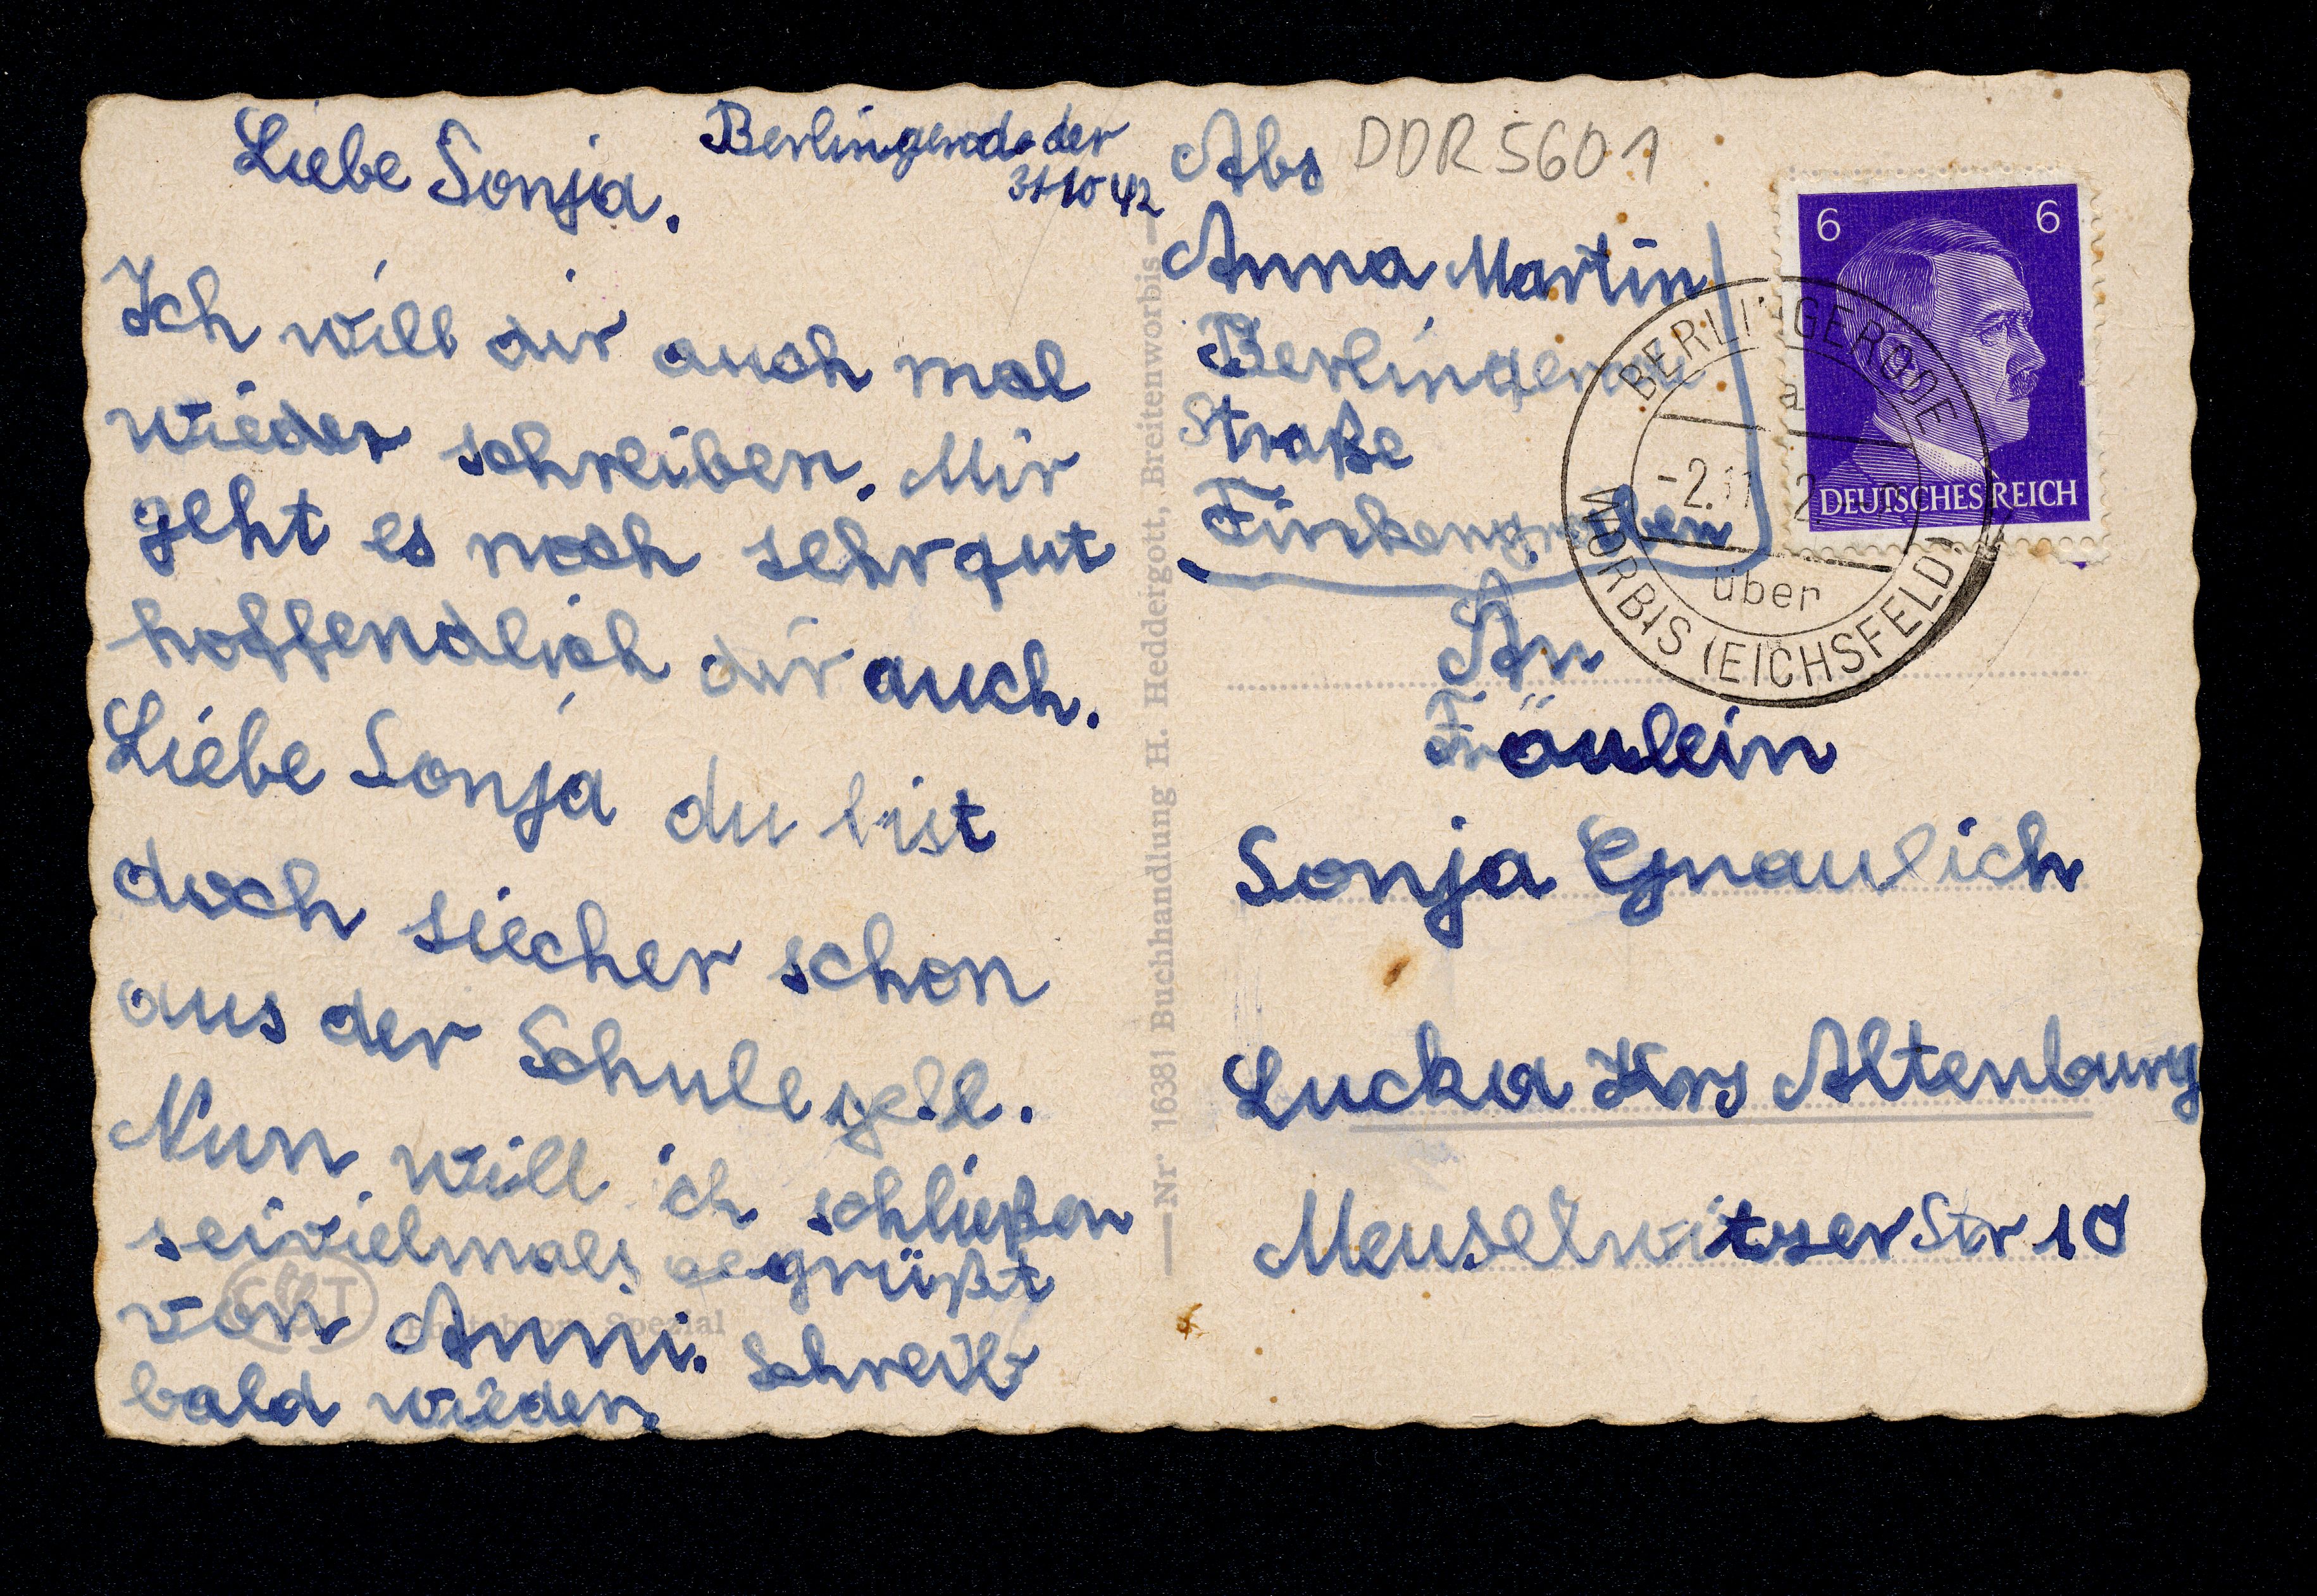 Berlingerode der
31 10 42
Liebe Sonja.
Ich will dir auch mal
wieder schreiben. Mir
geht es noch sehr gut
hoffendlich dir auch.
Liebe Sonja du bist
doch siecher schon
aus der Schule gell.
Nun will ich schließen
sei vielmals gegrüßt
von Anni. Schreib
bald wieder.
Nr. 16381 Buchhandlung H. Heddergott, Breitenworbis
Spezial
Abs DDR 5601
Anna Martin
Berlingerode
Straße
Finkengraben
6 6
DEUTSCHES REICH
BERLINGERODE
a
-2.11. 2
über
WORBIS (EICHSFELD)
An
Fräulein
Sonja Gnaulich
Lucka Krs Altenburg
Meuselwitzer Str 10